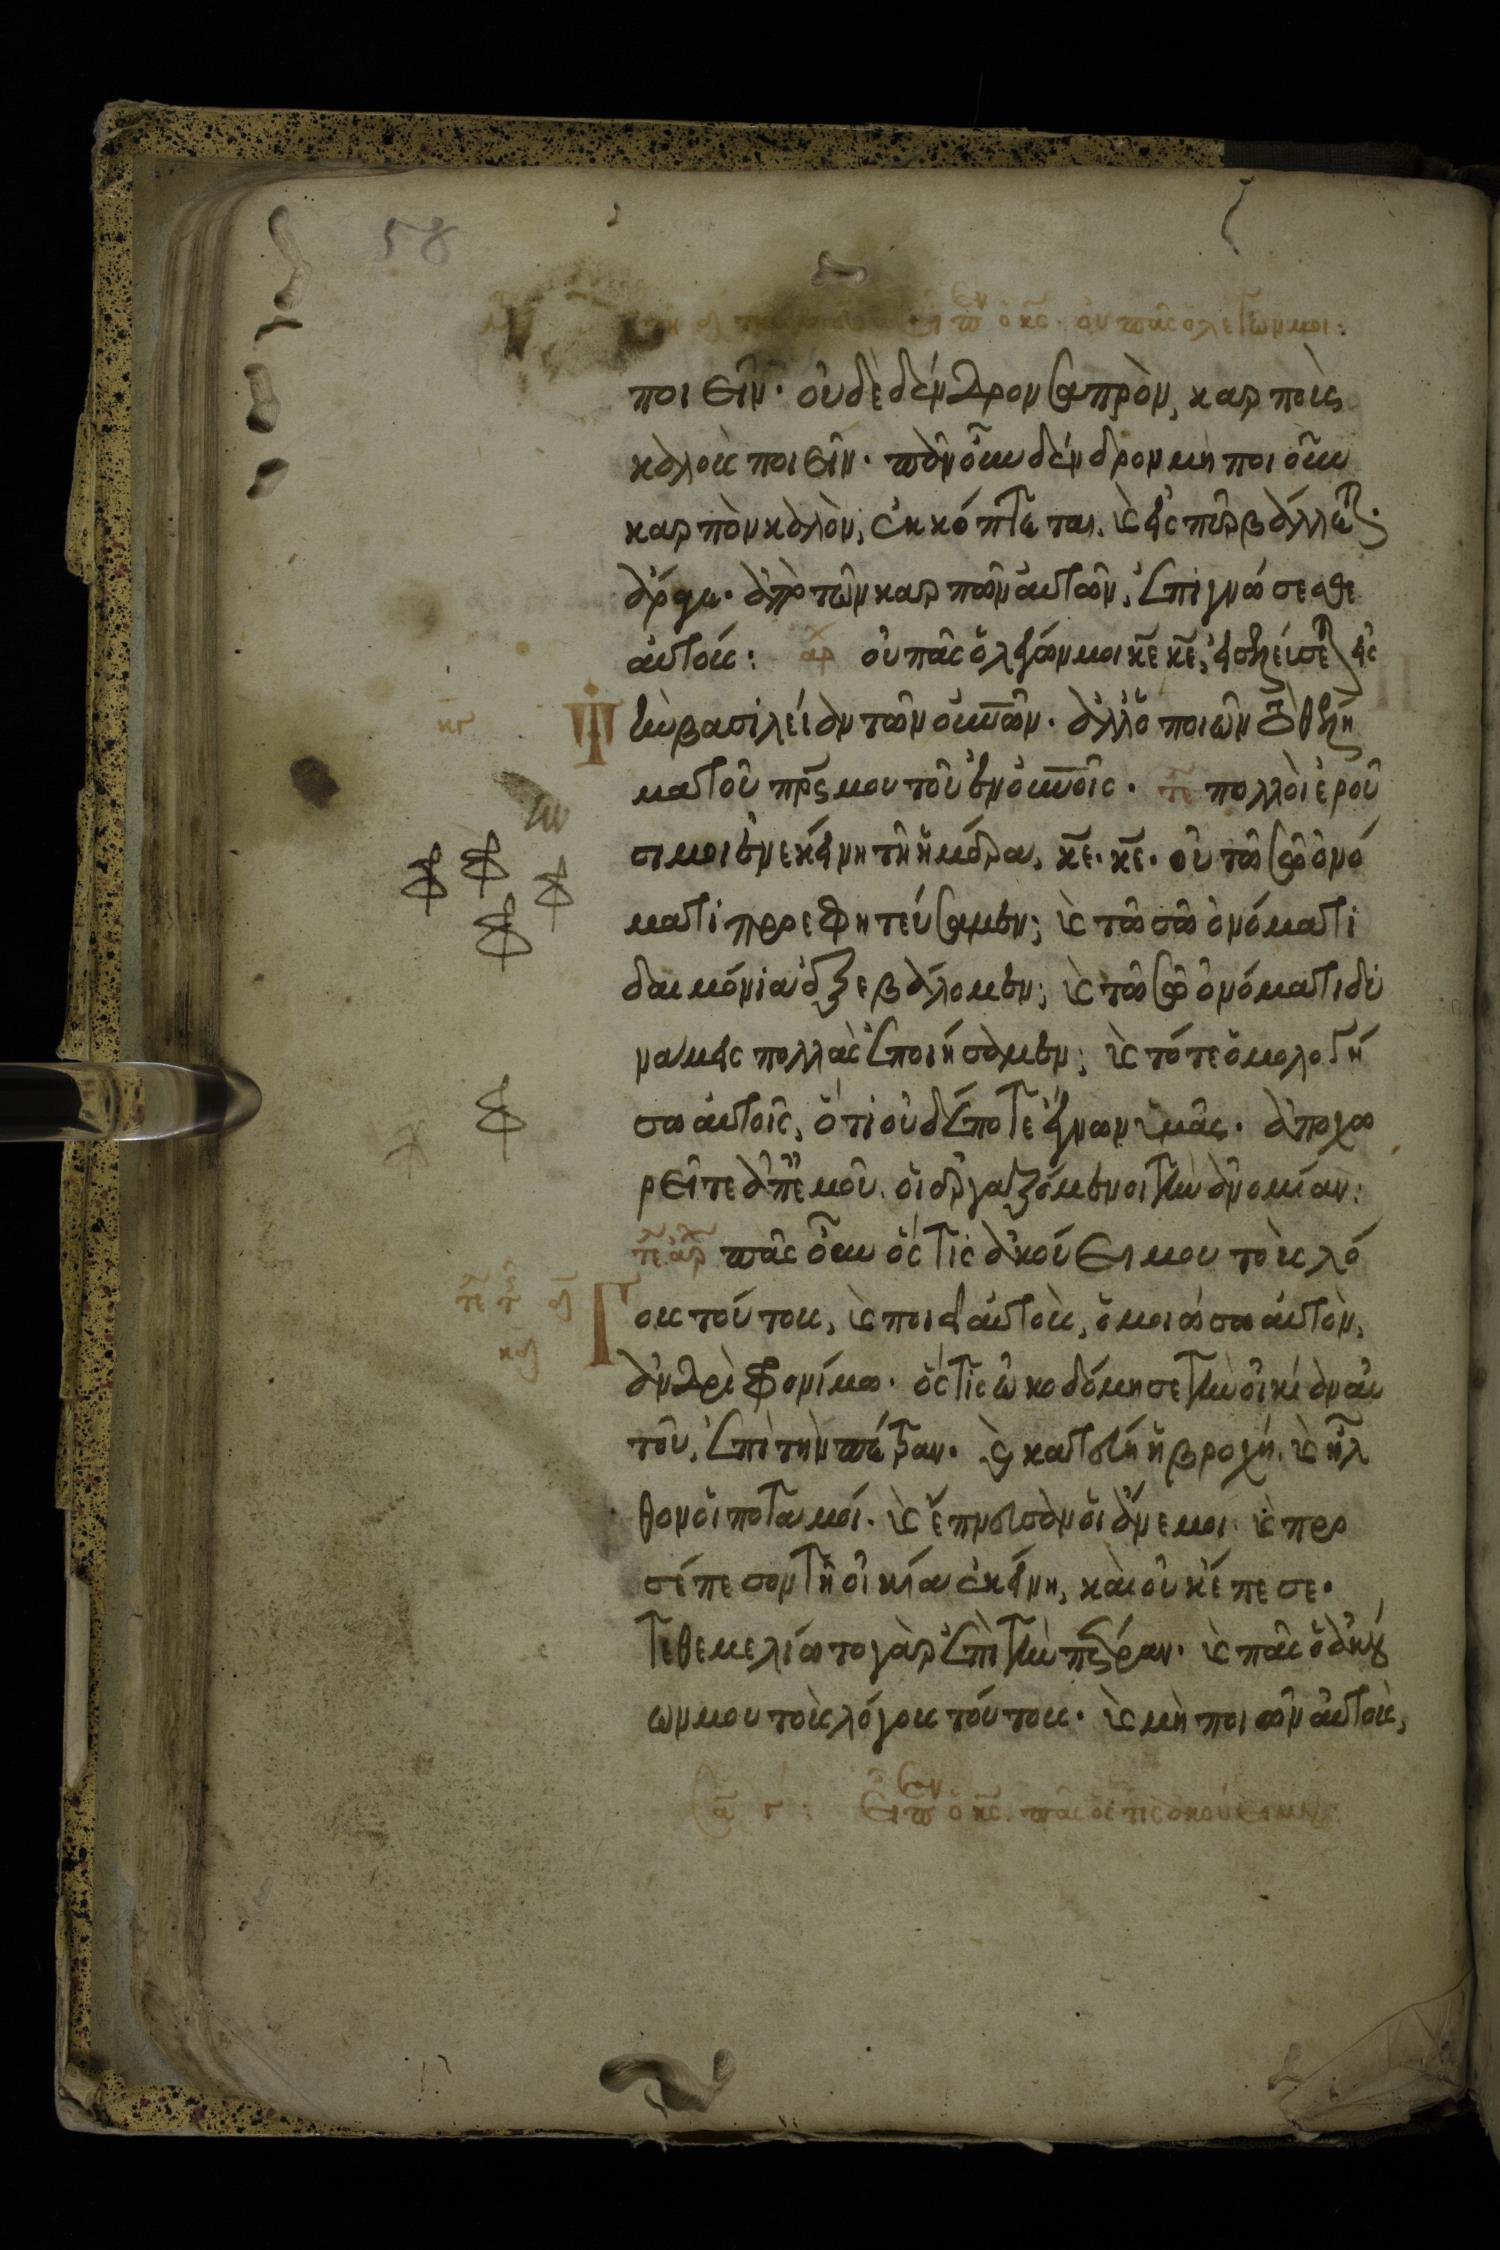 58
ὁ κ̅ς̅. οὐ πᾶς ὁ λέγων μοι:
ποιεῖν· οὐδὲ δένδρον σαπρὸν, καρποὺς
καλοὺς ποιεῖν· πᾶν οὖν δένδρον μὴ ποιοῦν
καρπὸν καλὸν, ἐκκόπτεται. καὶ εἰς πῦρ βάλλεται·
ἄραγε· ἀπὸ τῶν καρπῶν αὐτῶν, ἐπιγνώσεσθε
αὐτούς: ἀρχ οὐ πᾶς ὁ λέγων μοι κ̅ε̅ κ̅ε̅, εἰσελεύσεται εἰς
τὴν βασιλείαν τῶν οὐν̅ῶν· ἀλλ' ὁ ποιῶν τὸ θέλη
μα τοῦ πρ̅ς̅ μου τοῦ ἐν οὐν̅οῖς· τε πολλοὶ ἐροῦ
σι μοι ἐν ἐκείνη τῆ ἡμέρα, κ̅ε̅· κ̅ε̅· οὐ τῶ σῶ ὀνό
ματι προεφητεύσαμεν; καὶ τῶ σῶ ὀνόματι
δαιμόνια ἐξεβάλομεν; καὶ τῶ σῶ ὀνόματι δυ
νάμεις πολλὰς ἐποιήσαμεν; καὶ τότε ὁμολογή
σω αὐτοῖς, ὅτι οὐδέποτε ἔγνων ὑμᾶς· ἀποχω
ρεῖτε ἀπ' ἐμοῦ. οἱ ἐργαζόμενοι τὴν ἀνομίαν:
τε ἀρχ πᾶς οὖν ὅστις ἀκούει μου τοὺς λό
γους τούτους, καὶ ποιεῖ αὐτοὺς, ὁμοιώσω αὐτὸν,
ἀνδρὶ φρονίμω· ὅστις ὠκοδόμησε τὴν οἰκίαν αὐ
τοῦ, ἐπὶ τὴν πέτραν· καὶ κατέβη ἡ βροχή. καὶ ἦλ
θον οἱ ποταμοί· καὶ ἔπνευσαν οἱ ἄνεμοι· καὶ προ
σέπεσον τῆ οἰκία ἐκείνη, καὶ οὐκ ἔπεσε·
τεθεμελίωτο γὰρ ἐπὶ τὴν πέτραν· καὶ πᾶς ὁ ἀκού
ων μου τοὺς λόγους τούτους· καὶ μὴ ποιῶν αὐτοὺς,
Εἶπεν ὁ κ̅ς̅. πᾶς ὅστις ἀκούει μου